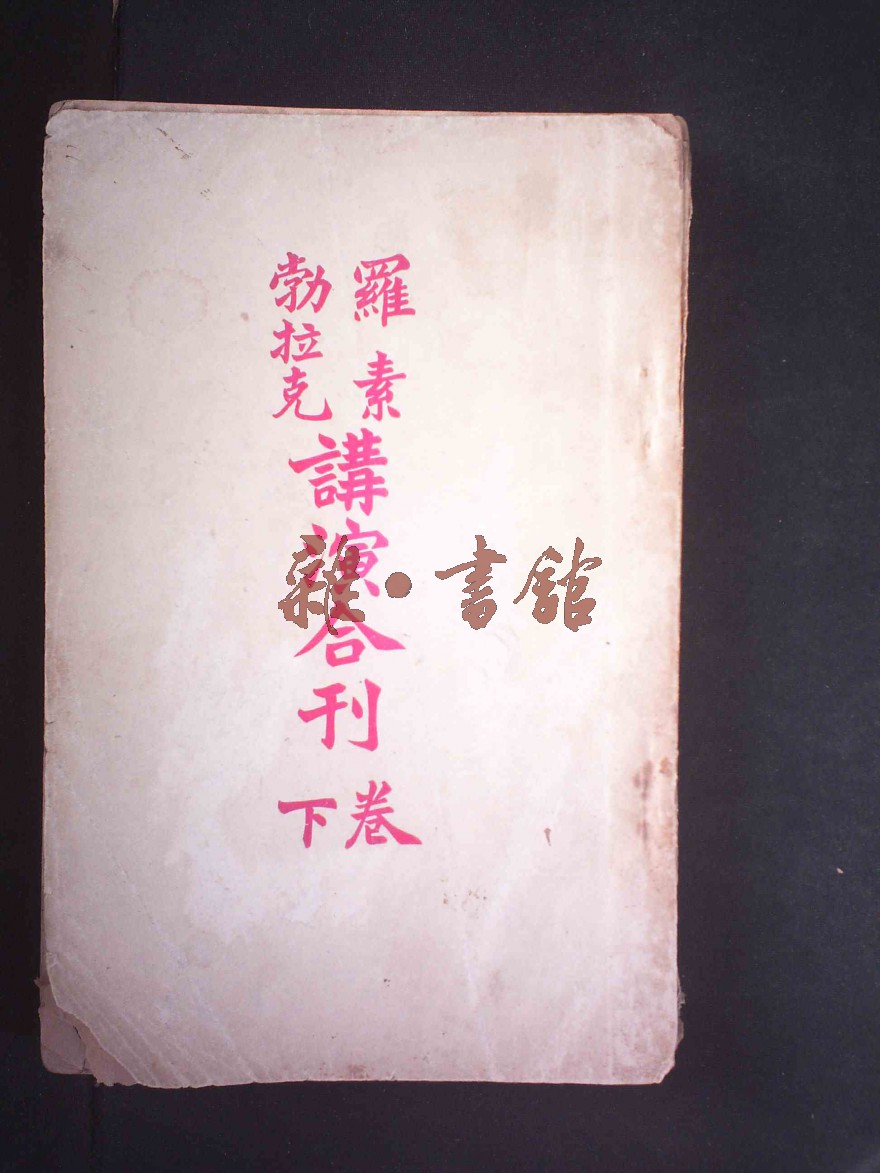 羅素
勃拉克
講演合刊
卷下
雜·書館